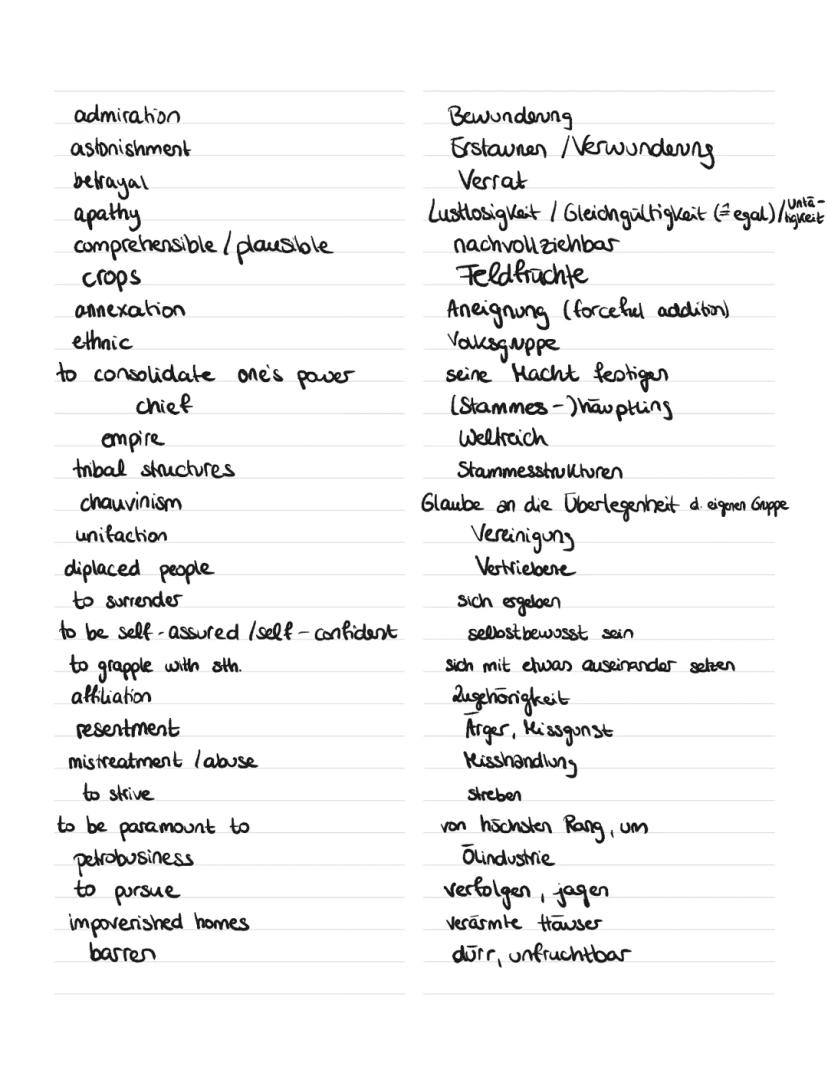 admiration Bewunderung
astonishment Erstaunen / Verwunderung
betrayal Verrat
apathy Lustlosigkeit / Gleichgültigkeit (≙ egal) / Untätigkeit
comprehensible / plausible nachvollziehbar
crops Feldfrüchte
annexation Aneignung (forceful addition)
ethnic Volksgruppe
to consolidate one's power seine Macht festigen
chief (Stammes-)häuptling
empire Weltreich
tribal structures Stammesstrukturen
chauvinism Glaube an die Überlegenheit d. eigenen Gruppe
unifaction Vereinigung
diplaced people Vertriebene
to surrender sich ergeben
to be self-assured / self-confident selbstbewusst sein
to grapple with sth. sich mit etwas auseinander setzen
affiliation Zugehörigkeit
resentment Ärger, Missgunst
mistreatment / abuse Misshandlung
to strive streben
to be paramount to von höchsten Rang, um
petrobusiness Ölindustrie
to pursue verfolgen, jagen
impoverished homes verarmte Häuser
barren dürr, unfruchtbar